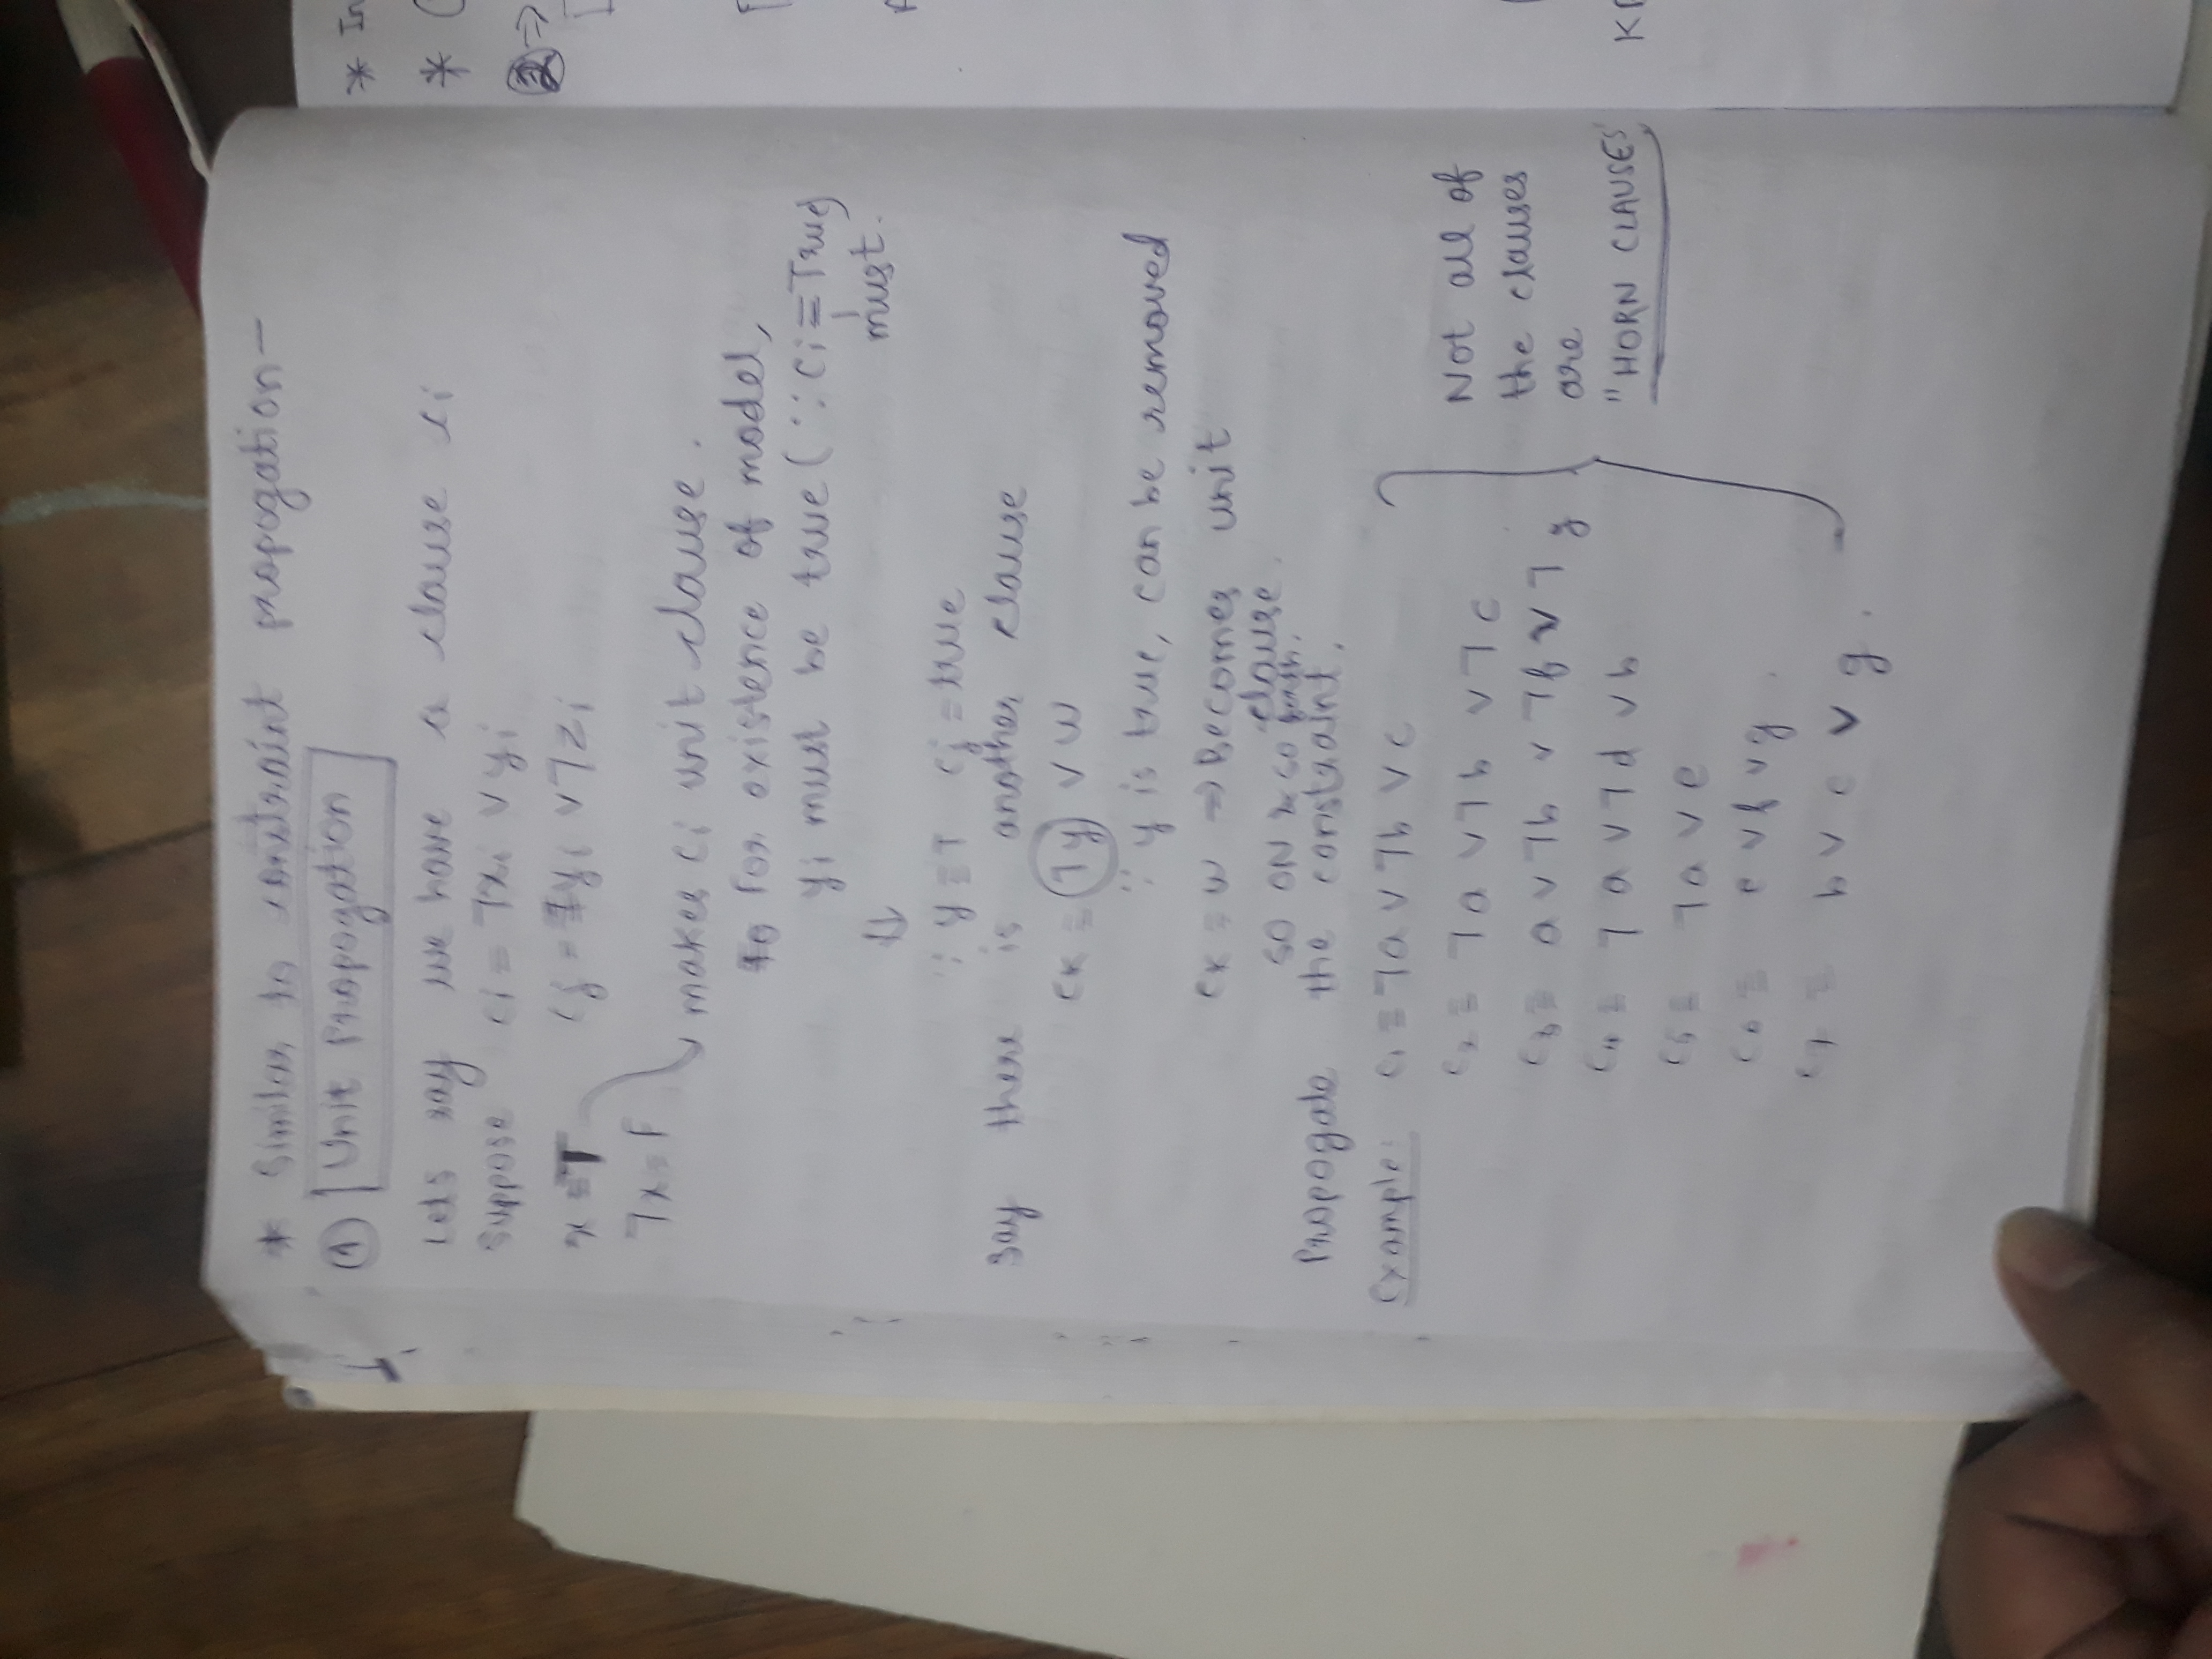 * Similar to constraint propogation-
① Unit Propogation
Lets say we have a clause ci
Suppose ci = ¬xi ∨ yi
x = T cj = yi ∨ ¬zi
¬x = F makes ci unit clause.
for existence of model,
yi must be true (∵ ci = True)
must.
⇓
∵ y ≡ T cj = true
Say there is another clause
cx ≡ ¬y ∨ w
∵ y is true, can be removed
cx ≡ w ⇒ Becomes unit
clause.
so on & so forth.
Propogate the constraint.
Example: c1 ≡ ¬a ∨ ¬b ∨ c
c2 ≡ ¬a ∨ ¬b ∨ ¬c
c3 ≡ a ∨ ¬b ∨ ¬f ∨ ¬g
c4 ≡ ¬a ∨ ¬d ∨ b
c5 ≡ ¬a ∨ e
c6 ≡ e ∨ f ∨ g.
c7 ≡ b ∨ c ∨ g.
Not all of
the clauses
are
"HORN CLAUSES"
* In
*
②⇒